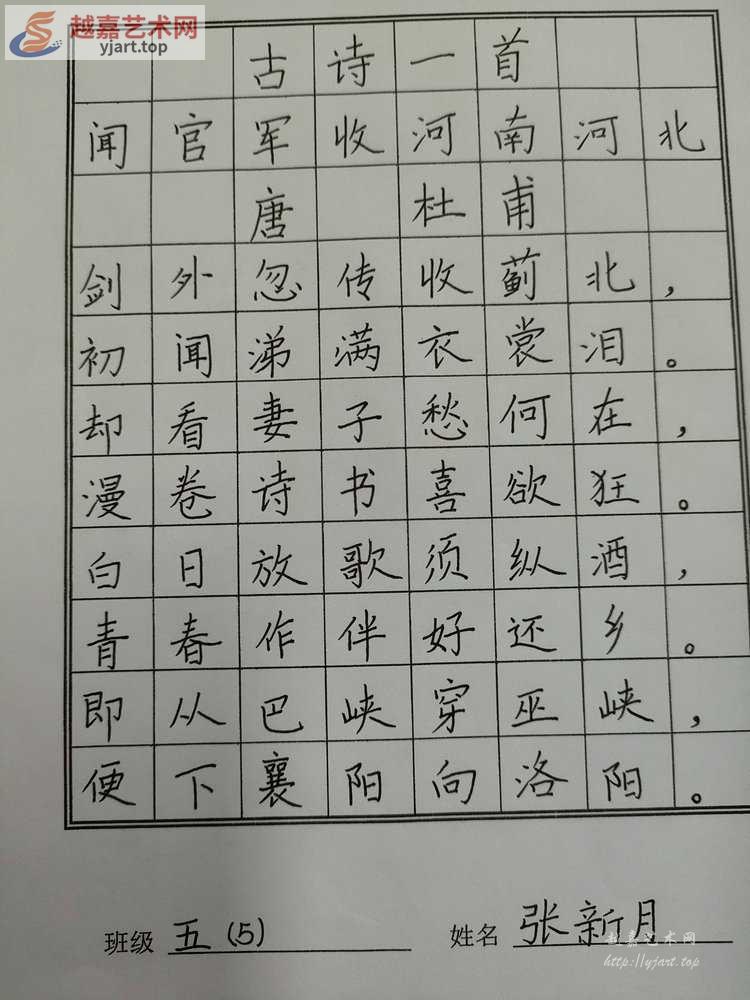 越嘉艺术网
yjart.top
古诗一首
闻官军收河南河北
唐 杜甫
剑外忽传收蓟北，
初闻涕满衣裳泪。
却看妻子愁何在，
漫卷诗书喜欲狂。
白日放歌须纵酒，
青春作伴好还乡。
即从巴峡穿巫峡，
便下襄阳向洛阳。
班级 五(5) 姓名 张新月
越嘉艺术网
http://yjart.top